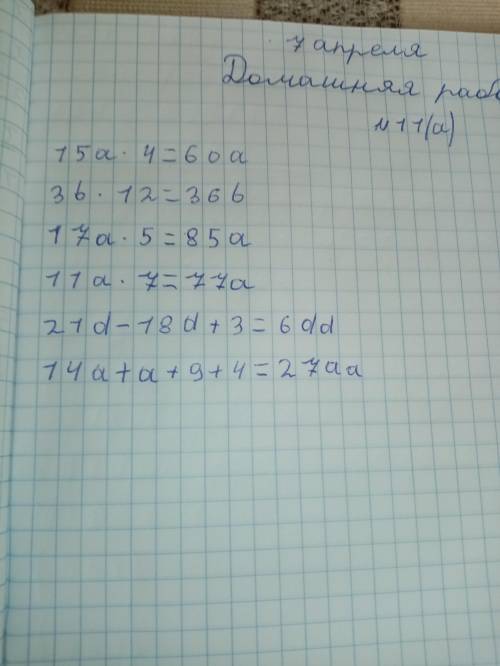 7 апреля
Домашняя рабо
№11(а)
15a · 4 = 60a
3b · 12 = 36b
17a · 5 = 85a
11a · 7 = 77a
21d - 18d + 3 = 6dd
14a + a + 9 + 4 = 27aa